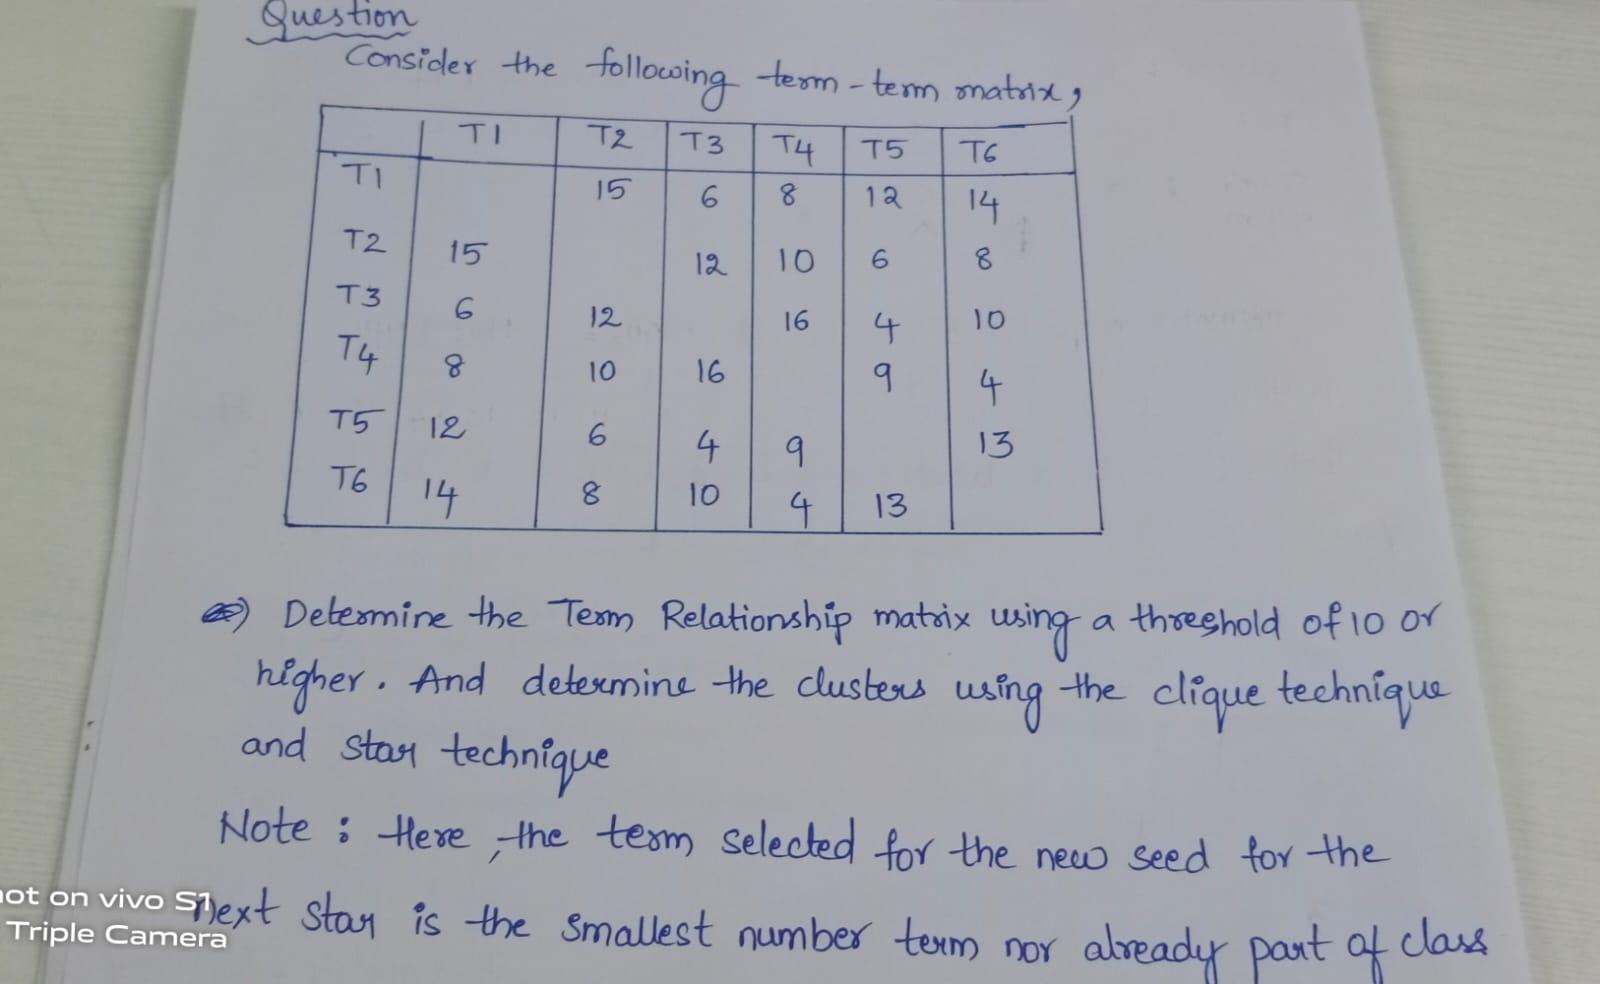 Question
Consider the following term-term matrix,
T1 T2 T3 T4 T5 T6
T1 15 6 8 12 14
T2 15 12 10 6 8
T3 6 12 16 4 10
T4 8 10 16 9 4
T5 12 6 4 9 13
T6 14 8 10 4 13
) Determine the Term Relationship matrix using a threshold of 10 or
higher. And determine the clusters using the clique technique
and star technique
Note : Here, the term selected for the new seed for the
next star is the smallest number term nor already part of class
not on vivo S1
Triple Camera